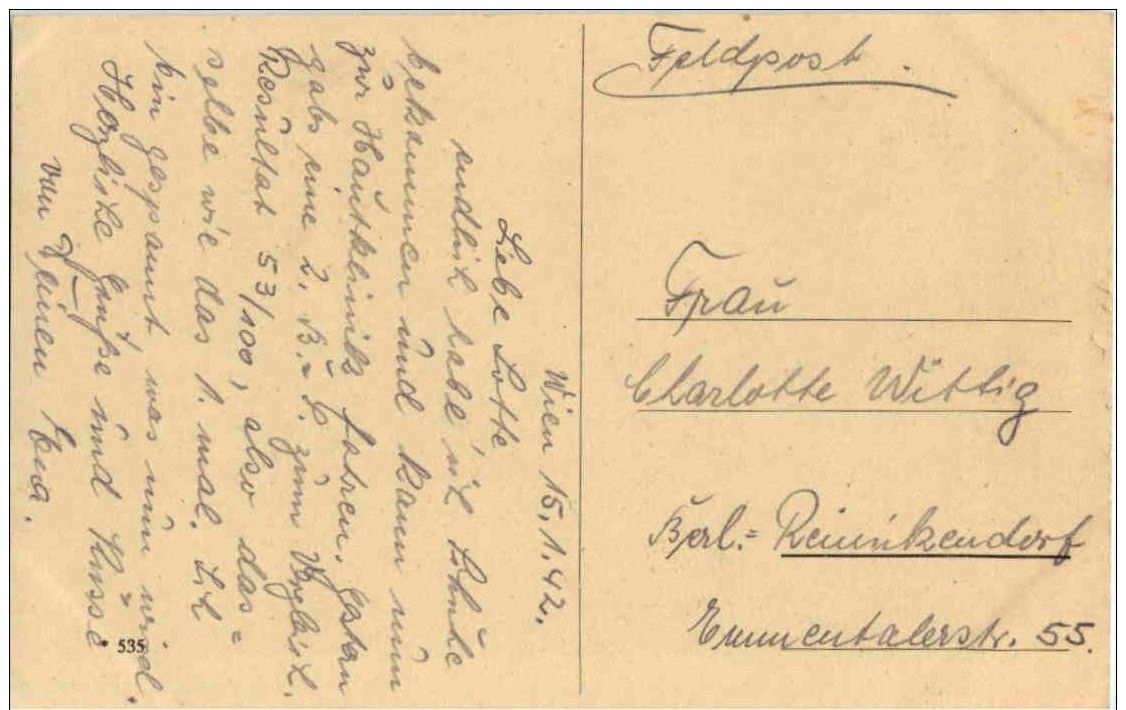 Feldpost.
Frau
Charlotte Wittig
Berl.= Reinikendorf
Emmentalerstr. 55.
Wien 15.1.42.
Liebe Lotte
endlich habe ich Schuhe
bekommen und kann nun
zur Hautklinik fahren. Gestern
gabs eine 2. B.S. zum Vergleich.
Resultat 53/100, also das=
selbe wie das 1. mal. Ich
bin gespannt, was nun wird.
Herzliche Grüße und Küsse
von Deinen
* 535